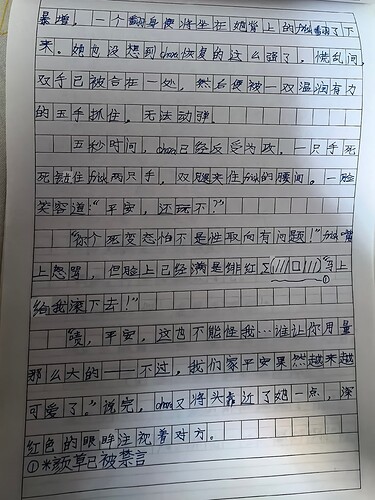 暴增。一个翻身便将坐在她背上的frisk翻了下
来。她也没想到chara恢复的这么强了。慌乱间，
双手已被合在一处，然后便被一双温润有力
的玉手抓住。无法动弹。
五秒时间，chara已经反受为攻。一只手死
死钳住frisk两只手，双腿夹住frisk的腰间。一脸
笑容道：“平安，还玩不？”
“你个死变态怕不是性取向有问题！”frisk嘴
上怒骂，但脸上已经满是绯红Σ(///□///)“马上
给我滚下去！”
“啧，平安，这也不能怪我…谁让你用量
那么大的——不过，我们家平安果然越来越
可爱了。”说完，chara又将头靠近了她一点，深
红色的眼眸注视着对方。
①※颜草已被禁言